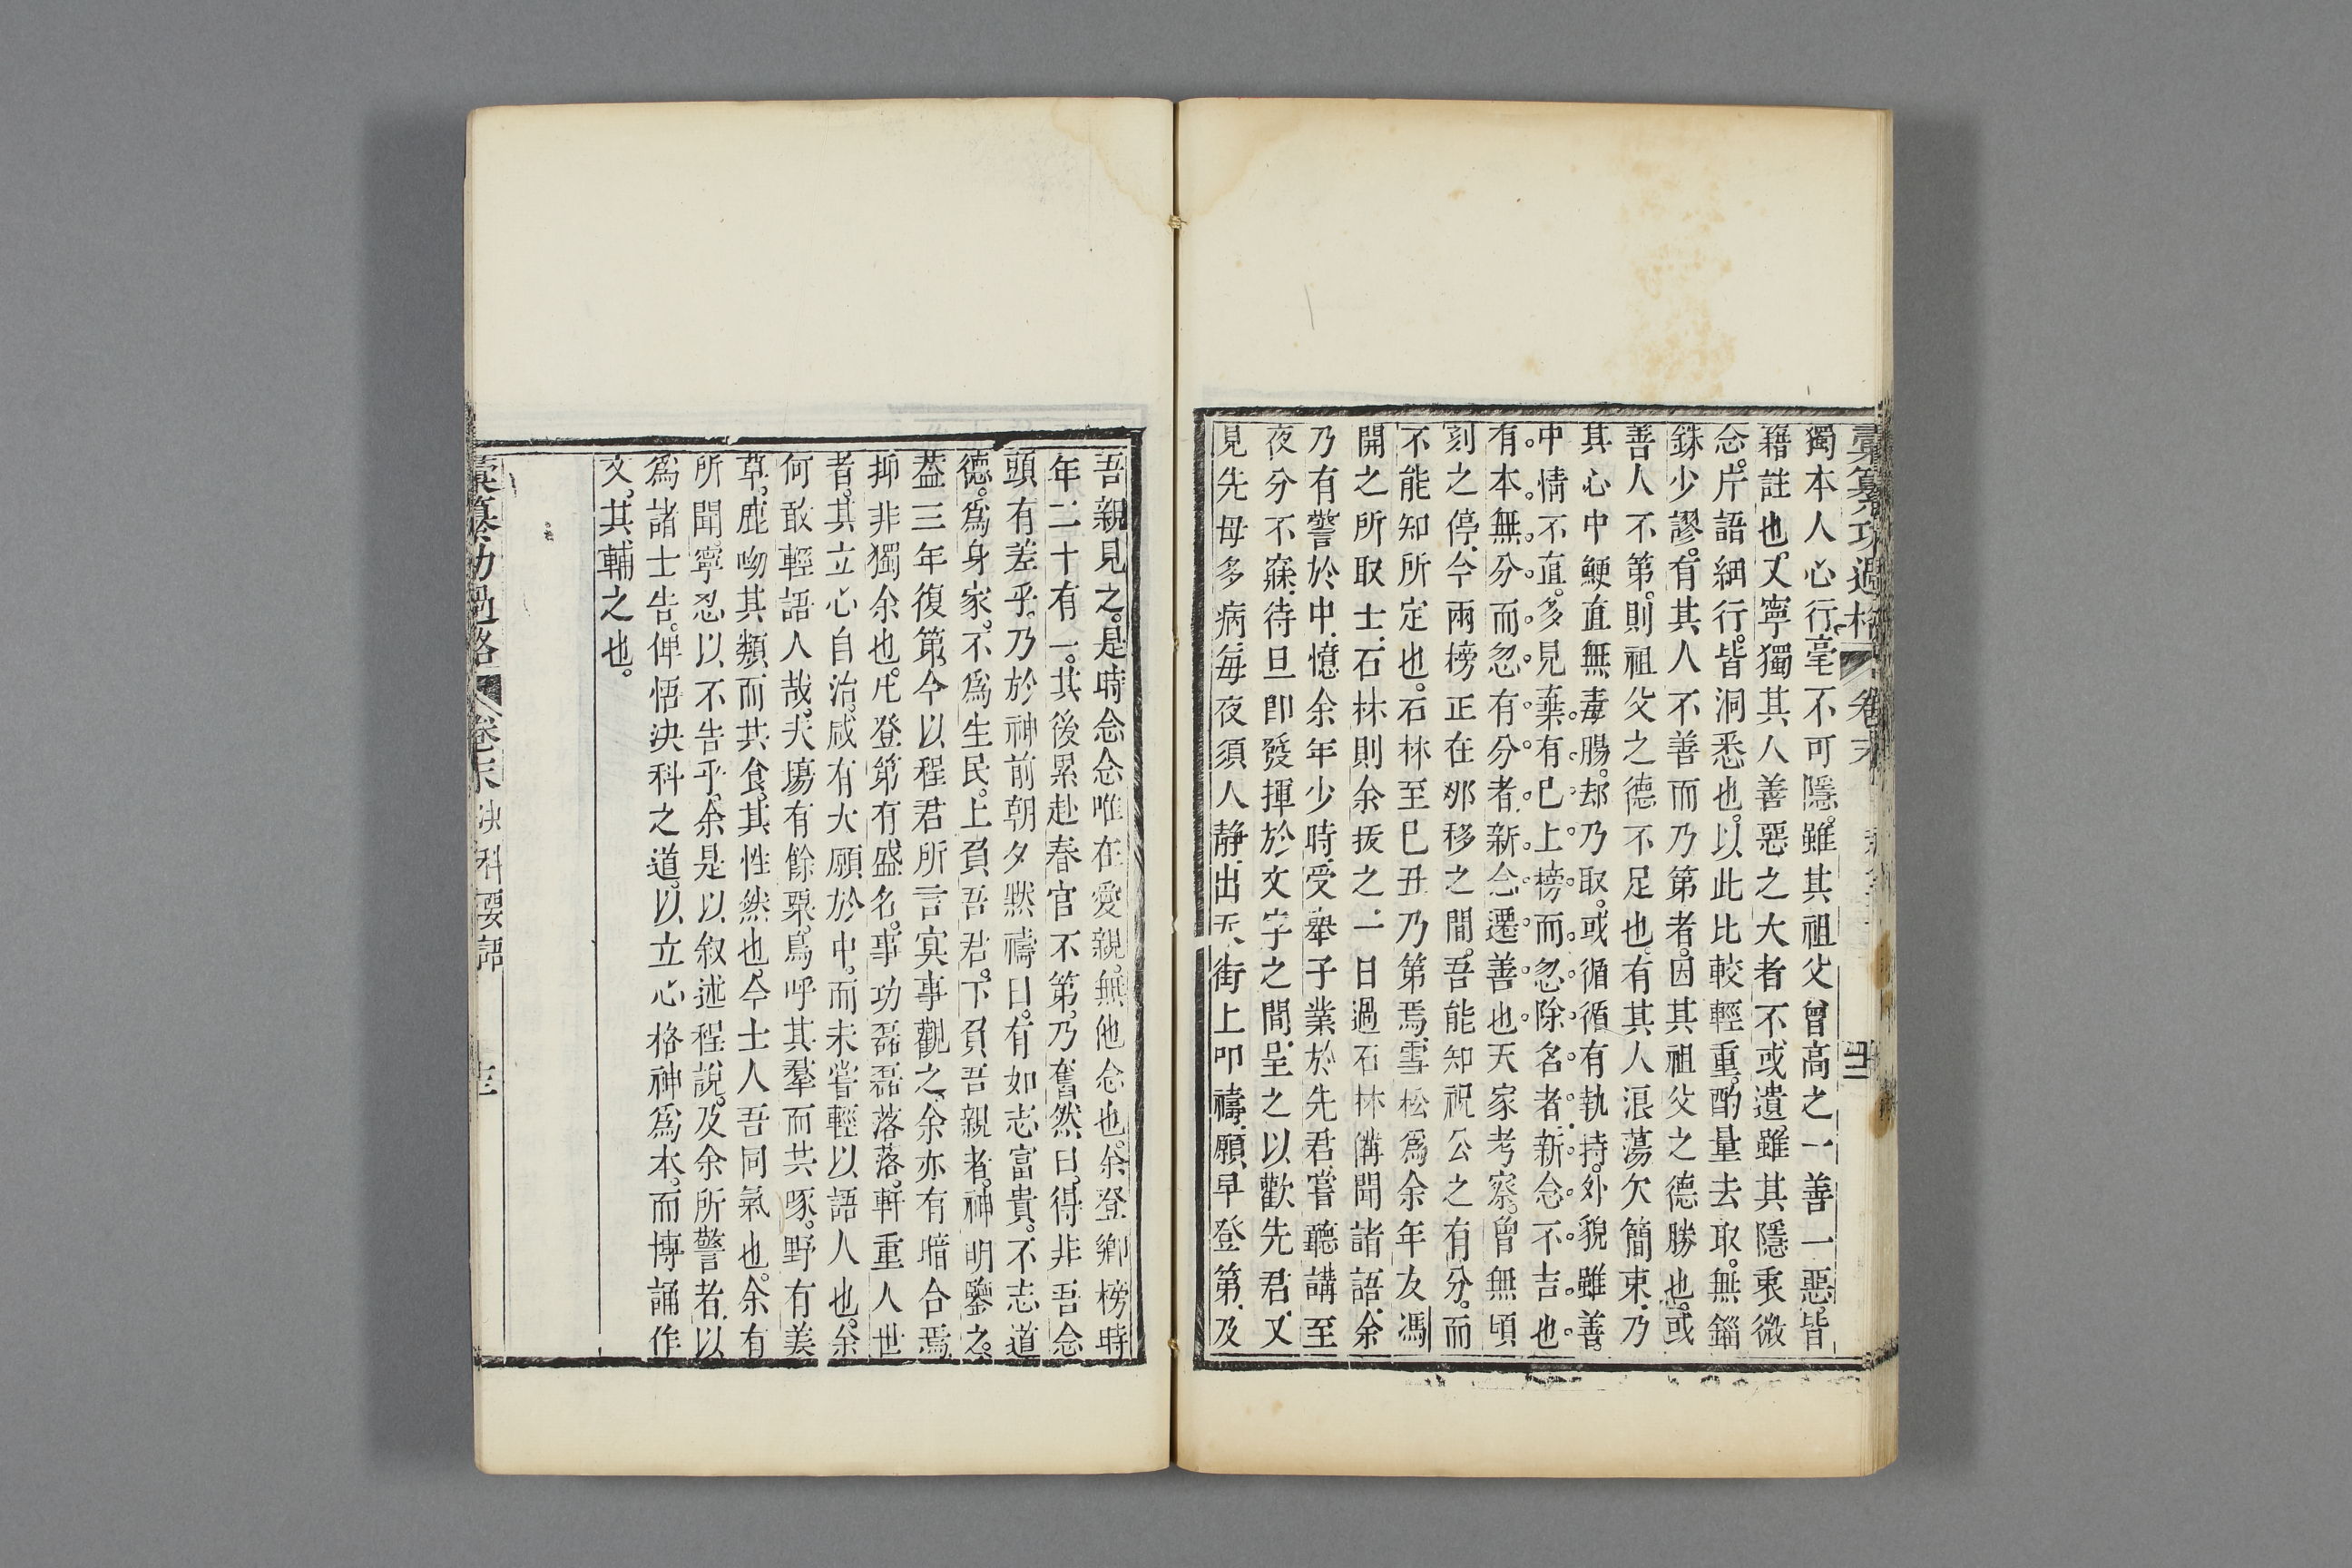 彚纂功過格 卷末
獨本人心行毫不可隱。雖其祖父曾高之一善一惡。皆
籍註也。又寧獨其人善惡之大者不或遺。雖其隱衷微
念。片語細行。皆洞悉也。以此比較輕重。酌量去取。無錙
銖少謬。有其人不善而乃第者。因其祖父之德勝也。或
善人不第。則祖父之德不足也。有其人浪蕩欠簡束。乃
其心中鯁直無毒腸。却乃取。或循循有執持。外貌雖善。
中情不直。多見棄。有已上榜而忽除名者。新念不吉也。
有本無分而忽有分者。新念遷善也。天家考察。曾無頃
刻之停。今兩榜正在那移之間。吾能知祝公之有分。而
不能知所定也。石林至巳丑乃第焉。雪松爲余年友馮
開之所取士。石林則余拔之。一日過石林講聞諸語。余
乃有警於中。憶余年少時。受舉子業於先君。嘗聽講至
夜分不寐。待旦卽發揮於文字之間。呈之以歡先君。又
見先母多病。每夜須人靜。出天街上叩禱。願早登第。及
吾親見之。是時念念唯在愛親。無他念也。余登鄉榜時
年二十有一。其後累赴春官不第。乃奮然曰。得非吾念
頭有差乎。乃於神前朝夕默禱曰。有如志富貴。不志道
德。爲身家。不爲生民。上負吾君。下負吾親者。神明鑒之。
葢三年復第。今以程君所言冥事觀之。余亦有暗合焉。
抑非獨余也。凡登第有盛名。事功磊磊落落。軒重人世
者。其立心自治。咸有大願於中。而未嘗輕以語人也。余
何敢輕語人哉。夫場有餘粟。鳥呼其羣而共啄。野有美
草。鹿呦其類而共食。其性然也。今士人吾同氣也。余有
所聞。寧忍以不告乎。余是以叙述程說。及余所警者。以
爲諸士告。俾悟決科之道。以立心格神爲本。而博誦作
文。其輔之也。
彚纂功過格 卷末 決科要語